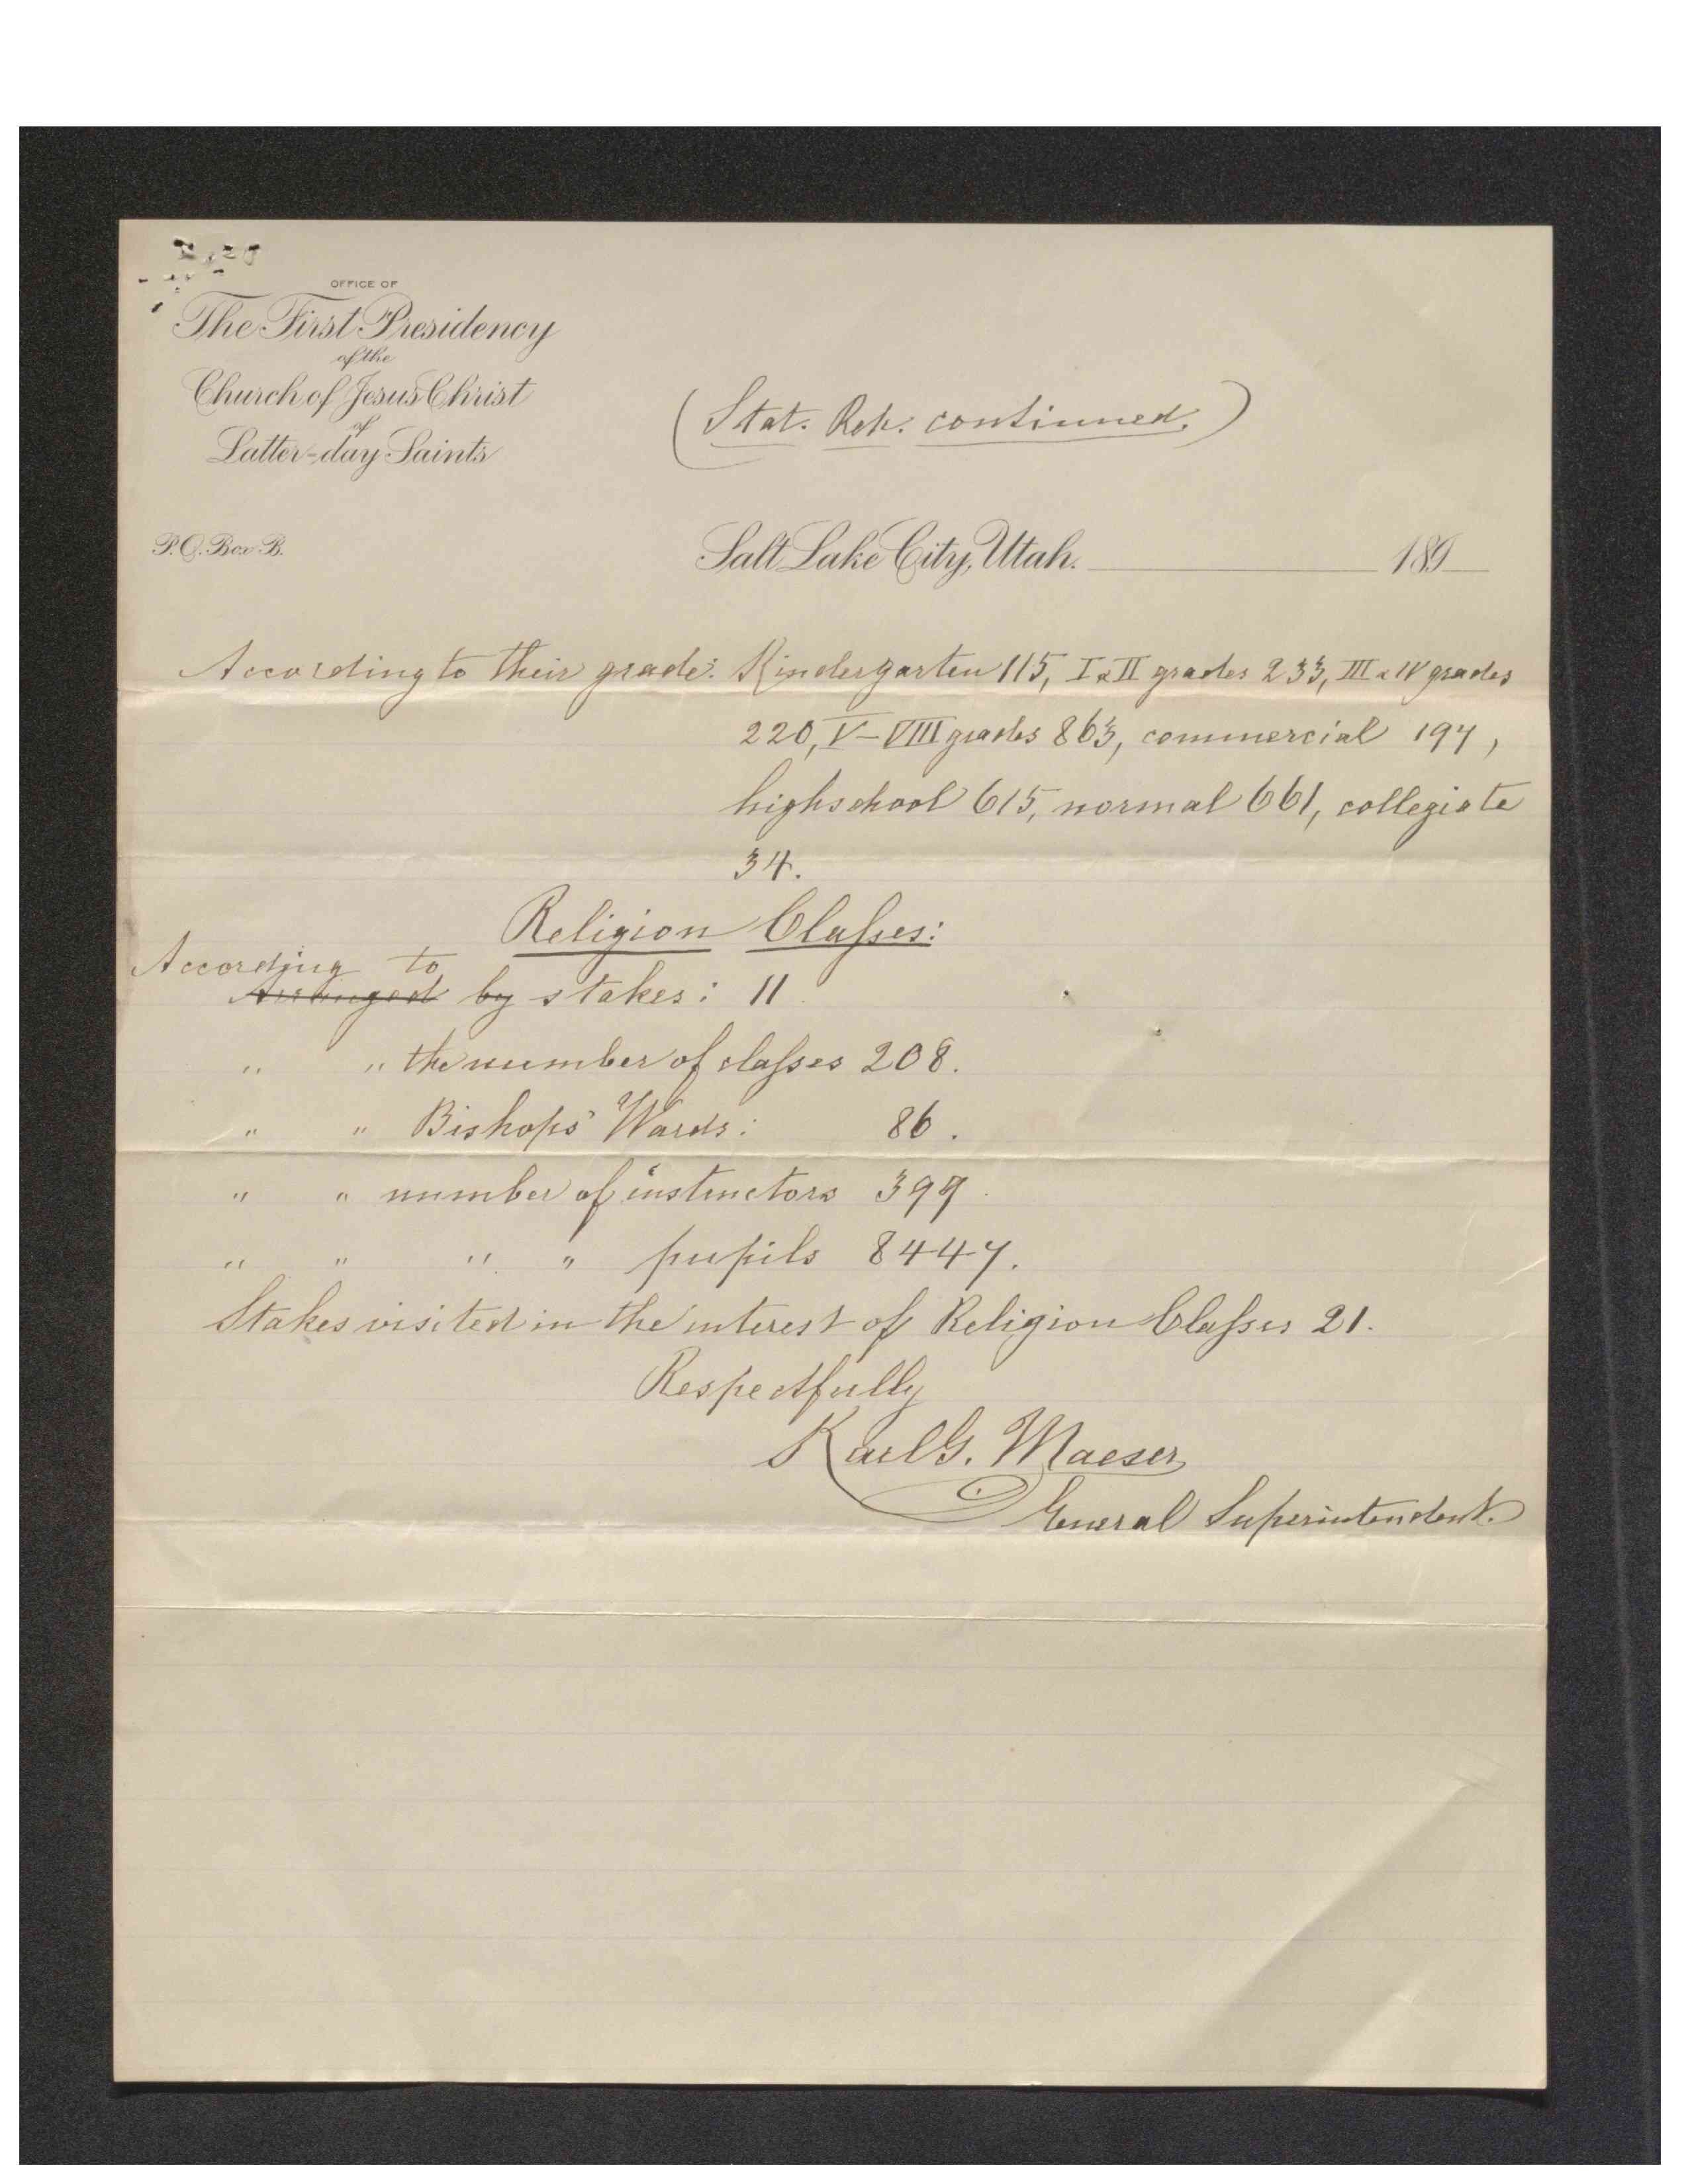 OFFICE OF
The First Presidency
of the
Church of Jesus Christ
of
Latter-day Saints
(Stat. Rep. continued.)
P.O. Box B.
Salt Lake City, Utah. 189
According to their grade: Kindergarten 115, I & II grades 233, III & IV grades
220, V-VIII grades 863, commercial 197,
highschool 615, normal 661, collegiate
34.
Religion Classes:
According to
Arranged by stakes: 11
" " the number of classes 208.
" " Bishops' Wards: 86.
" " number of instructors 399.
" " " " pupils 8447.
Stakes visited in the interest of Religion Classes 21.
Respectfully
Karl G. Maeser
General Superintendent.